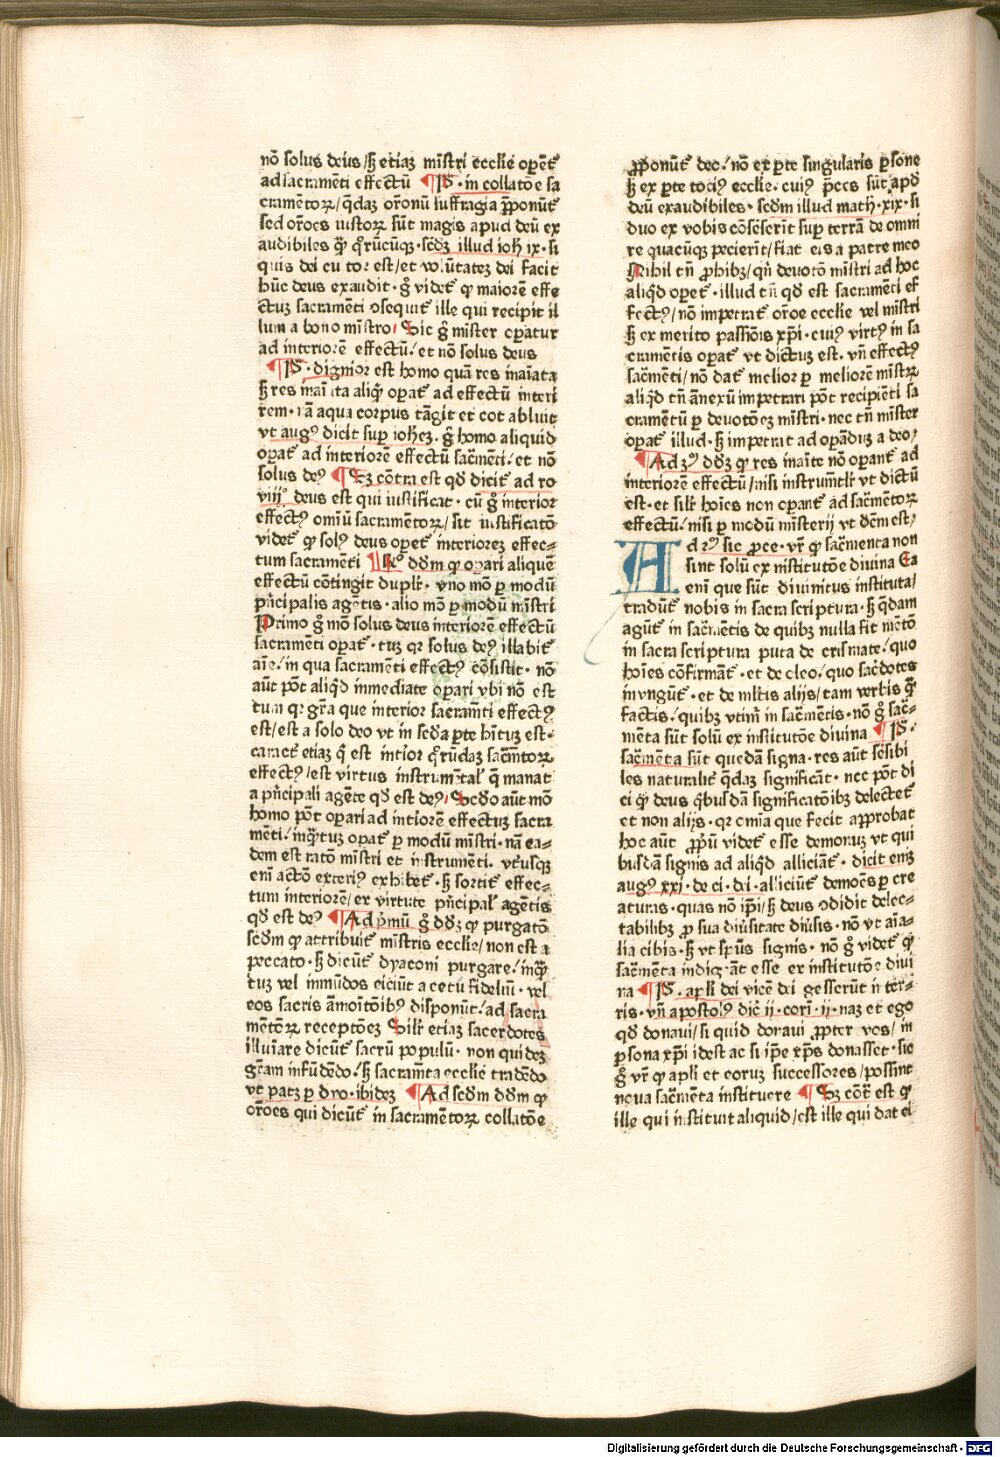 nō solus deus/ꝫ etiaꝫ mīstri ecclie oꝑent̄
ad sacramēti effectū ¶ Pͬ · in collatōe sa
cramētoꝝ/qͥdaꝫ orōnū suffragia ꝓponūt̄
sed orōes iustoꝝ sūt magis apud deū ex
audibiles qͣꝫ qͦrūcūqꝫ · scd̄ꝫ illud ioh̄ ix · si
quis dei cultor est/et volūtateꝫ dei facit
hūc deus exaudit · gͦ videt̄ ꝙ maiorē effe
ctuꝫ sacramēti ꝯsequit̄ ille qui recipit il
lum a bono mīstro Sic gͦ mīster oꝑatur
ad interiorē effectū · et nō solus deus
¶ Pͬ · dignior est homo quā res inaīata
ꝫ res inaīata aliqͥd oꝑat̄ ad effectū interi
rem · nā aqua corpus tāgit et cor abluit
vt augꝰ dicit suꝑ ioheꝫ · gͦ homo aliquid
oꝑat̄ ad interiorē effectū sacͣmēti · et nō
solus deꝰ ¶ Sꝫ cōtra est qd̄ dicit̄ ad ro
viijͦ deus est qui iustificat · cū gͦ interior
effectꝰ omīū sacramētoꝝ/sit iustificatō
videt̄ ꝙ solꝰ deus oꝑet̄ interioreꝫ effec=
tum sacramēti ¶ Rͦ dd̄m ꝙ oꝑari aliquē
effectū cōtingit duplr̄ · vno mō ꝑ modū
pͥncipalis agētis · alio mō ꝑ modū mīstri
Primo gͦ mō solus deus interiorē effectū
sacramēti oꝑat̄ · tuꝫ qꝛ solus deꝰ illabit̄
aīe/in qua sacramēti effectꝰ cōsistit · nō
aūt pōt aliqͥd immediate oꝑari vbi nō est
tum qꝛ gr̄a que interior sacramēti effectꝰ
est/est a solo deo vt in scd̄a ꝑte hītuꝫ est ·
caract̄ etiaꝫ qͥ est intior qͦrūdaꝫ sacͣmētoꝝ
effectꝰ/est virtus instrumētal̄ qͥ manat
a pͥncipali agēte qd̄ est deꝰ Scd̄o aūt mō
homo pōt oꝑari ad intiorē effectuꝫ sacra
mēti · inqͣtuꝫ oꝑat̄ ꝑ modū mīstri · nā ea=
dem est ratō mīstri et instrumēti · vtriusqꝫ
enī actō exteriꝰ exhibet̄ · ꝫ sortit̄ effec=
tum interiorē/ex virtute pͥncipal̄ agētis
qd̄ est deꝰ ¶ Ad pͥmū gͦ dd̄ꝫ ꝙ purgatō
scd̄m ꝙ attribuit̄ mīstris ecclie/non est a
peccato · ꝫ dicūt̄ dyaconi purgare/inqͣ
tuꝫ vel inmūdos eiciūt a cetu fideliū · vel
eos sacris āmoītōibꝰ disponūt/ad sacra
mētoꝝ receptōeꝫ Silr̄ etiaꝫ sacerdotes
illuīare dicūt̄ sacrū populū · non quideꝫ
gr̄am infūdēdo/ꝫ sacramēta ecclie tradēdo
vt patꝫ ꝑ dyo · ibideꝫ ¶ Ad scd̄m dd̄m ꝙ
orōes qui dicūt̄ in sacramētoꝝ collatōe
ꝓponūt̄ deo · nō ex ꝑte singularis ꝑsone
ꝫ ex ꝑte tociꝰ ecclie · cuiꝰ pͥces sūt apd̄
deū exaudibiles · scd̄m illud math · xix · si
duo ex vobis cōsēserīt suꝑ terrā de omni
re quacūqꝫ pecierīt/fiat eis a patre meo
Nihil tn̄ ꝓhibꝫ/qn̄ deuotō mīstri ad hoc
aliqͥd oꝑet̄ · illud tn̄ qd̄ est sacramēti ef
fectꝰ/nō impetrat̄ orōe ecclie vel mīstri
ꝫ ex merito passiōis xp̄i · cuiꝰ virtꝰ in sa
cramētis oꝑat̄ vt dictuꝫ est · vn̄ effectꝰ
sacͣmēti/nō dat̄ melior ꝑ meliorē mīstꝝ
aliqͥd tn̄ ānexū impetrari pōt recipiēti sa
cramētū ꝑ deuotōeꝫ mīstri · nec tn̄ mīster
oꝑat̄ illud · ꝫ impetrat ad oꝑāduꝫ a deo/
¶ Ad ꝫꝰ dd̄ꝫ ꝙ res inaīte nō oꝑant̄ ad
interiorē effectū/nisi instrumētlr̄ vt dictū
est · et silr̄ hoīes non oꝑant̄ ad sacͣmētoꝝ
effectū/nisi ꝑ modū mīsterij vt dēm est/
Ad ꝛꝰ sic ꝓce · vr̄ ꝙ sacͣmenta non
sint solū ex īstitutōe diuina Ea
enī que sūt diuinitus instituta/
tradūt̄ nobis in sacra scriptura · ꝫ qͥdam
agūt̄ in sacͣmētis de quibꝫ nulla fit mētō
in sacra scriptura puta de crismate/quo
hoīes cōfirmāt̄ · et de oleo/quo sacͣdotes
invngūt̄ · et de mltīs alijs/tam verbis qͣꝫ
factis/quibꝫ vtim̄ in sacͣmētis · nō gͦ sacͣ=
mēta sūt solū ex institutōe diuina ¶ Pͬ ·
sacͣmēta sūt quedā signa · res aūt sēsibi
les naturalit̄ qͥdaꝫ significāt · nec pōt di
ci ꝙ deus qͥbusdā significatōibꝫ delectet̄
et non alijs · qꝛ omīa que fecit approbat
hoc aūt ꝓpͥū videt̄ esse demonuꝫ vt qui
busdā signis ad aliqͥd alliciāt̄ · dicit eniꝫ
augꝰ xxj · de ci · dei · alliciūt̄ demoēs ꝑ cre
aturas · quas nō ip̄i/ꝫ deus ꝯdidit delec=
tabilibꝫ ꝓ sua diuīsitate diuīsis · nō vt aīa=
lia cibis · ꝫ vt sp̄us signis · nō gͦ videt̄ ꝙ
sacͣmēta indigeāt esse ex institutōe diui
na ¶ Pͬ · apl̄i dei vicē dei gesserūt in ter=
ris · vn̄ apostolꝰ dic̄ ij · corī · ij · naꝫ et ego
qd̄ donaui/si quid donaui ꝓpter vos/in
ꝑsona xp̄i idest ac si ip̄e xp̄s donasset · sic
gͦ vr̄ ꝙ apl̄i et eoruꝫ successores/possint
noua sacͣmēta instituere ¶ Sꝫ cōt̄ est ꝙ
ille qui instituit aliquid/est ille qui dat ei
Digitalisierung gefördert durch die Deutsche Forschungsgemeinschaft - DFG